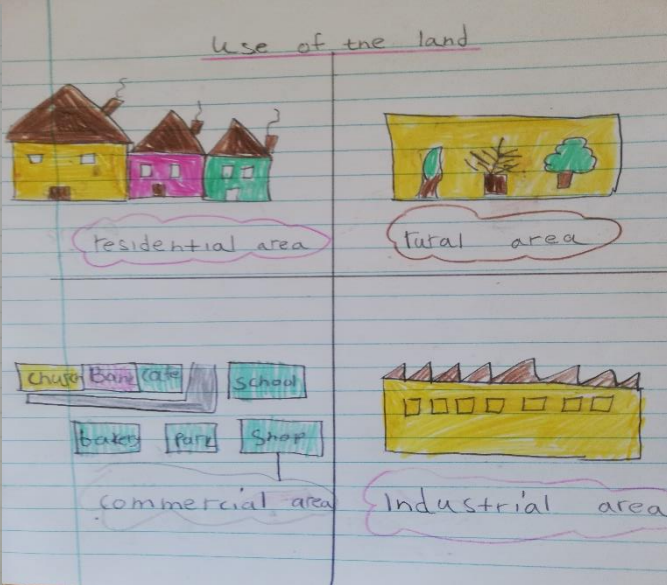 Use of the land
residential area
rural area
church Bank cafe
school
bakery park Shop
commercial area
Industrial area